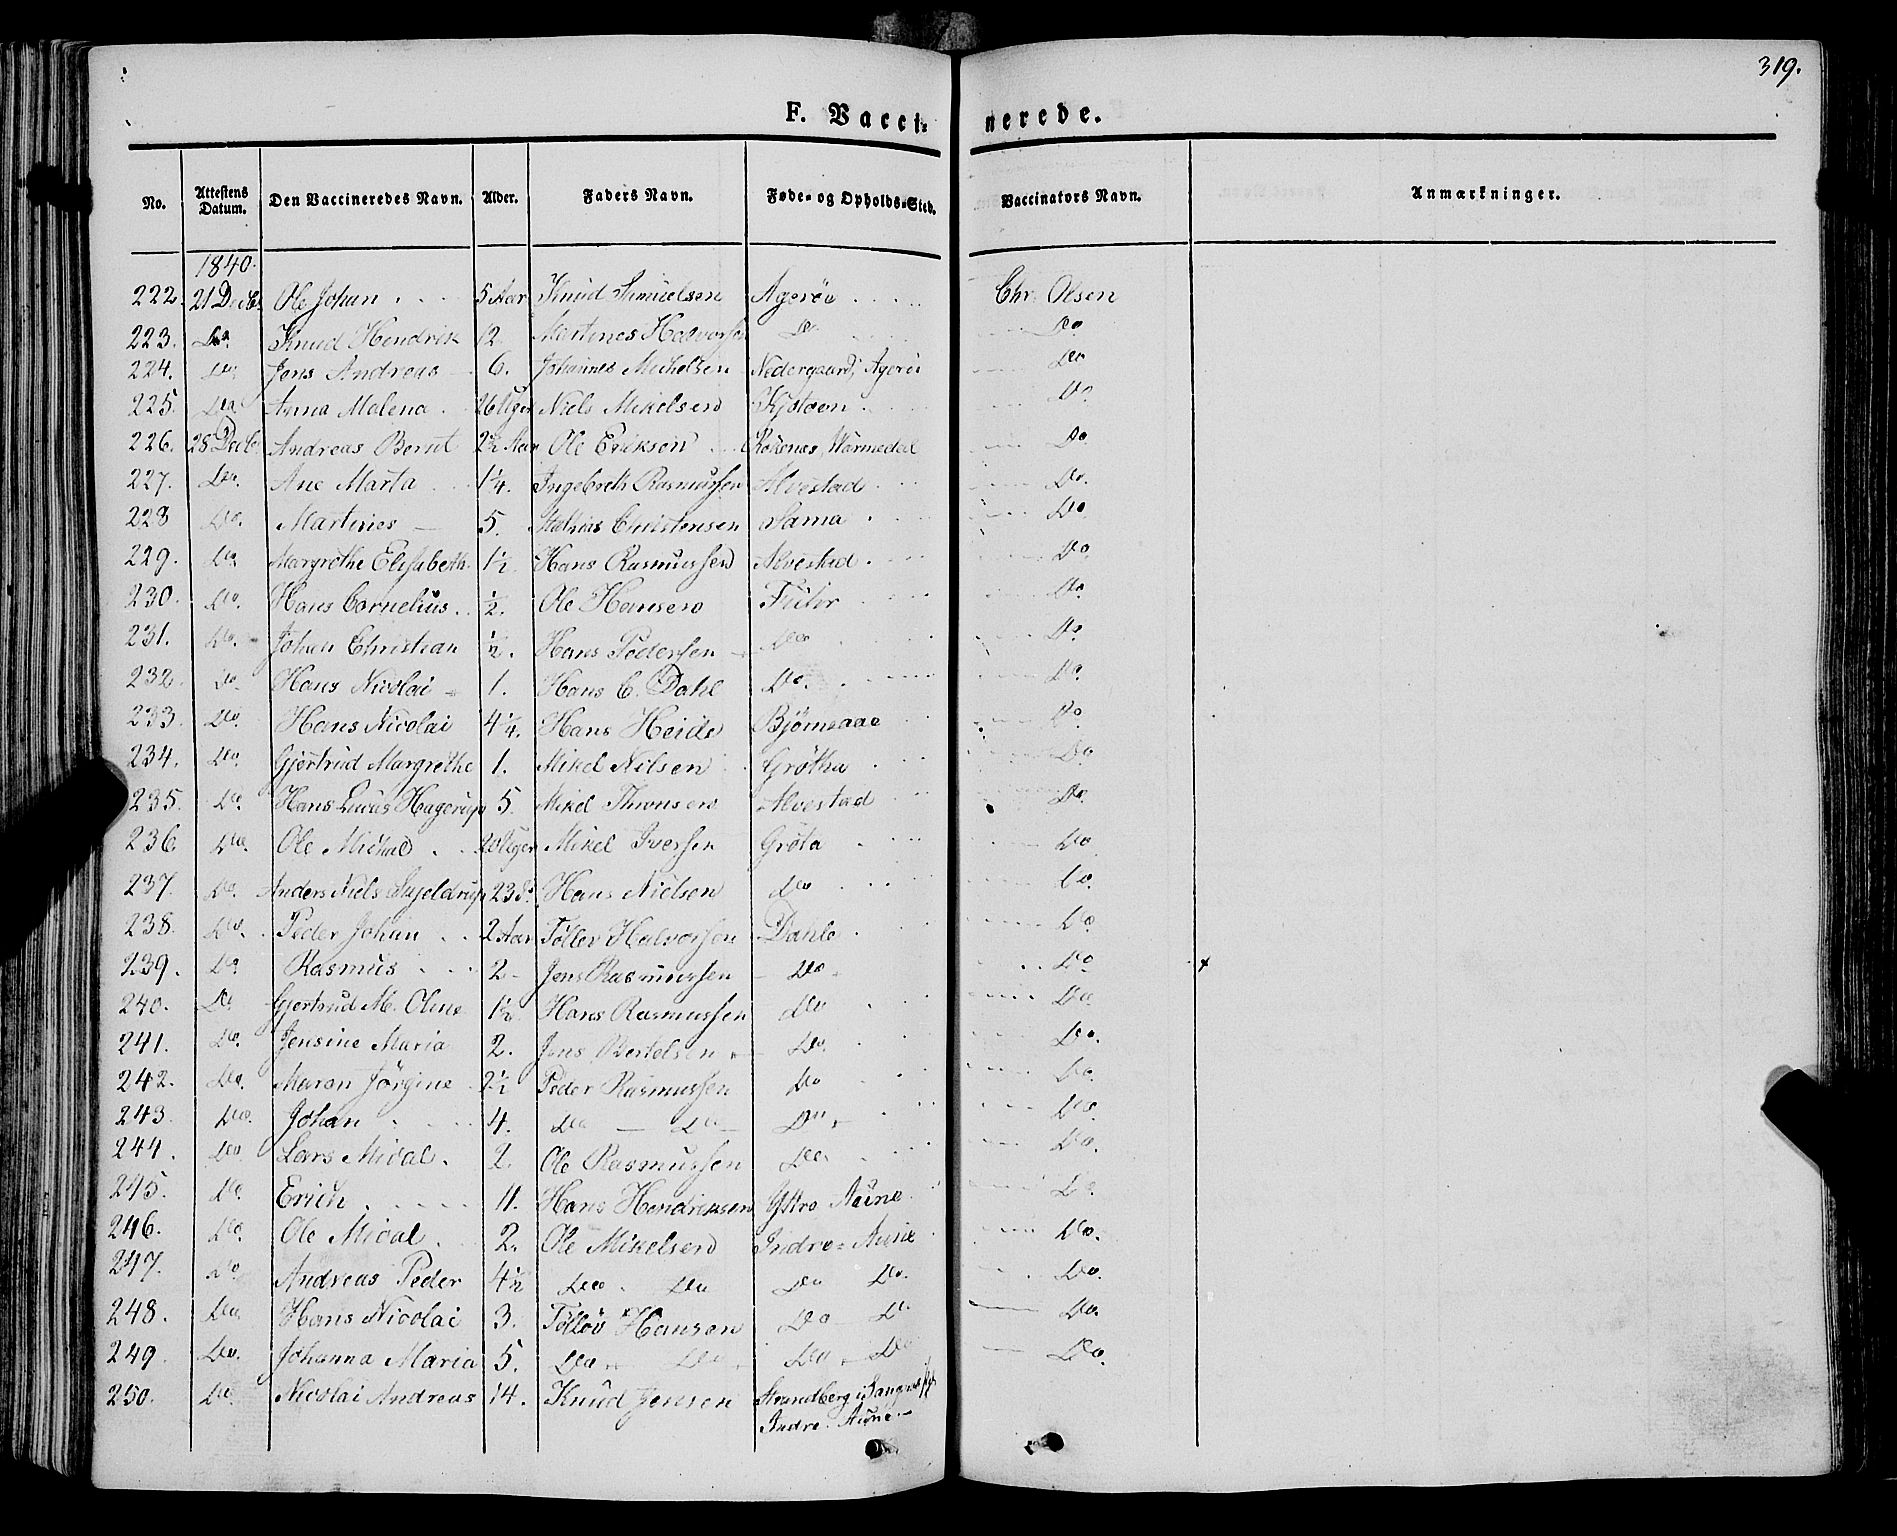 319.
F. Vaccinerede.
No. Attestens Datum. Den Vaccineredes Navn. Alder. Faders Navn. Føde- og Opholds-Sted. Vaccinators Navn. Anmærkninger.
1840.
222. 21 Decb. Ole Johan 5 Aar Knud Samuelsen Agerøe Chr. Olsen
223. Do. Knud Hendrik 12. Martines Halvorsen Do Do
224. Do. Jens Andreas 6. Johannes Michelsen Nedergaard, Agerøe Do
225. Do Anna Malena 26 Uger Niels Mikelsen Do
226. 28 Decb. Andreas Bernt 2½ Aar Ole Eriksen Do
227. Do. Ane Marta 1¼. Ingebreth Rasmussen Alvestad Do.
228 Do. Martines 5. Mathias Christensen Sama Do
229. Do Margrethe Elisabeth 1½. Hans Rasmussen Alvestad Do.
230. Do. Hans Cornelius ½. Ole Hansen Do
231. Do. Johan Christian ½. Hans Pedersen Do Do
232. Do. Hans Nicolai 1. Hans C. Dahl Do. Do.
233. Do. Hans Nicolai 4¼. Hans Heide Bjørnraae Do.
234. Do. Gjertrud Margrethe 1. Mikel Nilsen Grøtha Do
235. Do Hans Lucas Hagerup 5. Mikel Thronsen Alvestad Do.
236. Do. Ole Michal 20 Uger Mikel Iversen Grøta Do
237. Do. Anders Niels Skjeldrup 23 Do. Hans Nielsen Do Do.
238. Do. Peder Johan 2 Aar Tøller Halvorsen Dahle Do
239. Do Rasmus 2 Jens Rasmussen Do Do
240. Do Gjertrud M. Oline 1½. Hans Rasmussen Do Do.
241. Do. Jensine Maria 2. Jens Bertelsen Do. Do.
242. Do. Maren Jørgine 2½ Peder Rasmussen Do Do.
243. Do. Johan 4. Do Do Do Do
244. Do Lars Mical. 2. Ole Rasmussen Do. Do.
245. Do Erich 11. Hans Hendriksen Yttre Aune Do.
246. Do. Ole Mical 2. Ole Mikelsen Indre Aune Do.
247. Do Andreas Peder 4½ Do. Do Do Do. Do.
248. Do. Hans Nicolai 3. Tølløv Hansen Do Do Do.
249. Do. Johanna Maria 5. Do Do Do Do Do.
250. Do Nicolai Andreas 14. Knud Jensen Strandberg i
Indre Aune